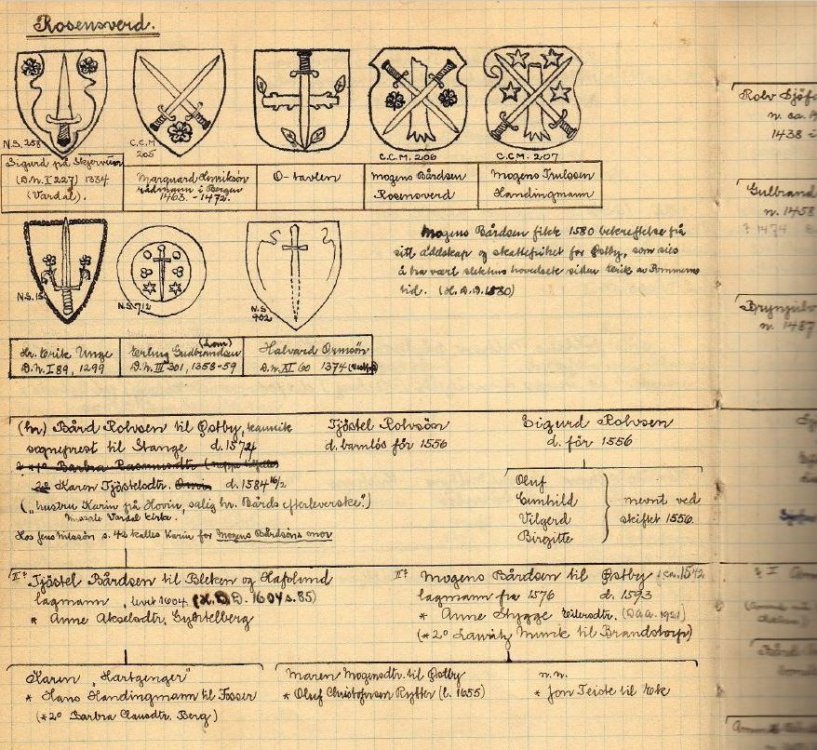 Rosensverd.
N.S. 258
C.C.M. 205
C.C.M. 206
C.C.M. 207
Sigurd på
(D.N. I 227) 1334
(Vardal).
Marquard Henriksön
rådmann i Bergen
1463. - 1472.
O-tavlen
Mogens Bårdsen
Rosensverd
Mogens Trulssen
Handingmann
N.S. 15
N.S. 712
N.S. 902
Mogens Bårdsen fikk 1580 bekreftelse på
sitt adelskap og skattefrihet for Østby, som sies
å ha vært slektens hovedsete siden Erik av Pommerns
tid. (H.D.D. 1580)
Hr. Erik Unge
D.N. I 89, 1299
Erling Gudbrandsen (Lom)
D.N. III-301, 1358-59
Halvard Ormsön
D.N. XI 60 1374
(hr) Bård Rolvsen til Østby, kannik
sogneprest til Stange d. 1574
2º Karen Tjöstelsdtr. d. 1584 16/2
("hustru Karin på Hovin, salig hr. Bårds efterleverske".)
Vardal kirke.
Hos Jens Nilssön s. 42 kalles Karin for Mogens Bårdsöns mor
Tjöstel Rolvsön
d. barnlös för 1556
Sigurd Rolvsen
d. för 1556
Oluf
Gunhild
Vilgerd
Birgitte
nevnt ved
skiftet 1556.
I? Tjöstel Bårdsen til Bleken og Hafslund
lagmann, levet 1604 (H.D.D. 1604 s. 85)
* Anne Akselsdtr. Gyntelberg
II? Mogens Bårdsen til Østby f. ca. 1542
lagmann fra 1576 d. 1593
* Anne Stygge Eilersdtr. (D.a.a. 1921)
(*2º Lauritz Munk til Brandstorp)
Karen "Hartzenger"
* Hans Handingmann til Fosser
(*2º Barbra Clausdtr. Berg)
Maren Mogensdtr. til Østby
* Oluf Christofersen Rytter (l. 1655)
n.n.
* Jon Teiste til Eke
Rolv
n. ca.
1438
Gulbrand
n. 1458
Brynjulv
n. 1487